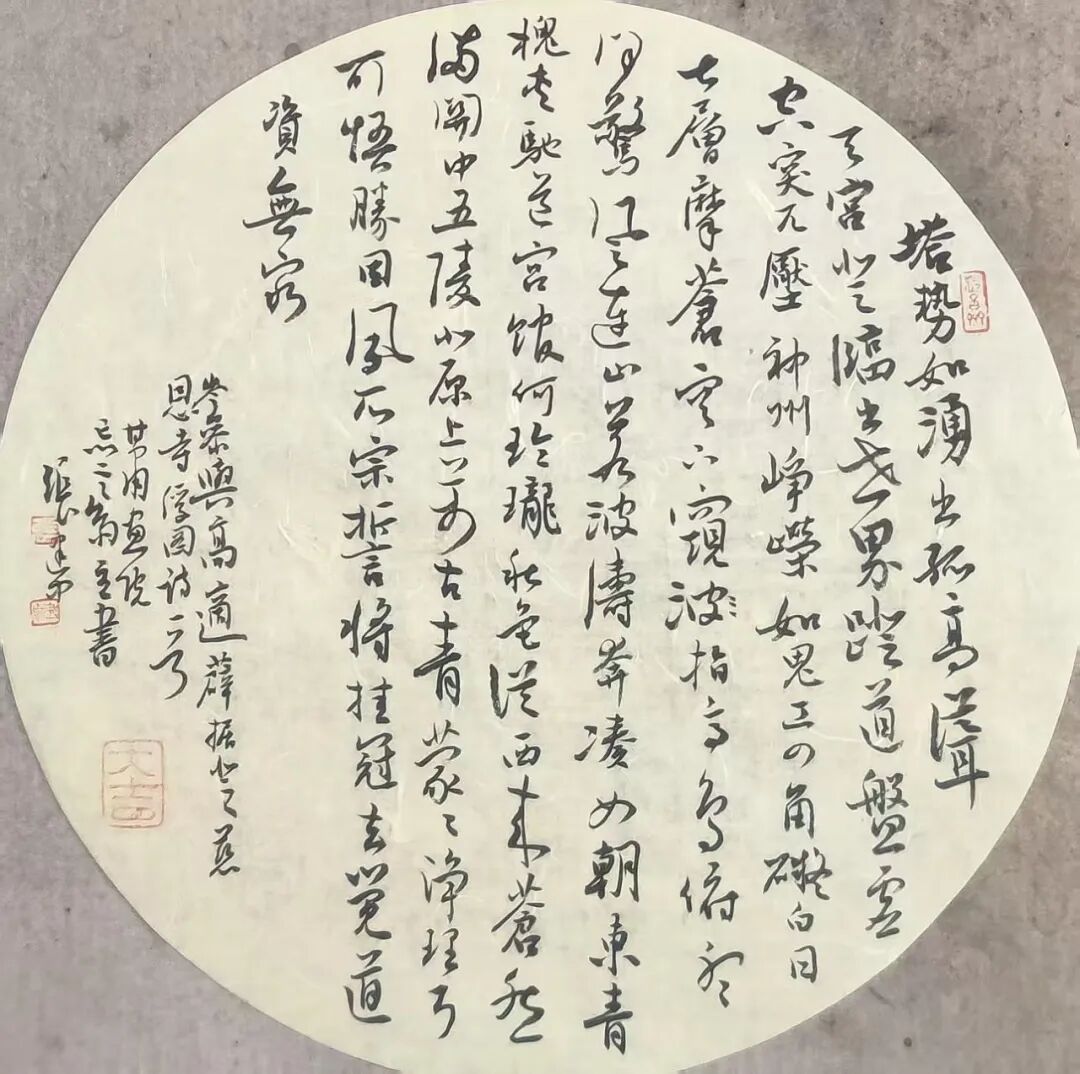 塔勢如湧出孤高聳
天宮登臨出世界蹬道盤虛
空突兀壓神州崢嶸如鬼工四角礙白日
七層摩蒼穹下窺波指高鳥俯聽
聞驚風連山若波濤奔湊似朝東青
槐夾馳道宮館何玲瓏秋色從西來蒼然
滿關中五陵北原上萬古青蒙〻淨理了
可悟勝因夙所宗誓將挂冠去覺道
資無窮
岑參與高適薛據登慈
恩寺浮圖詩一首
畫院
書
張
大吉